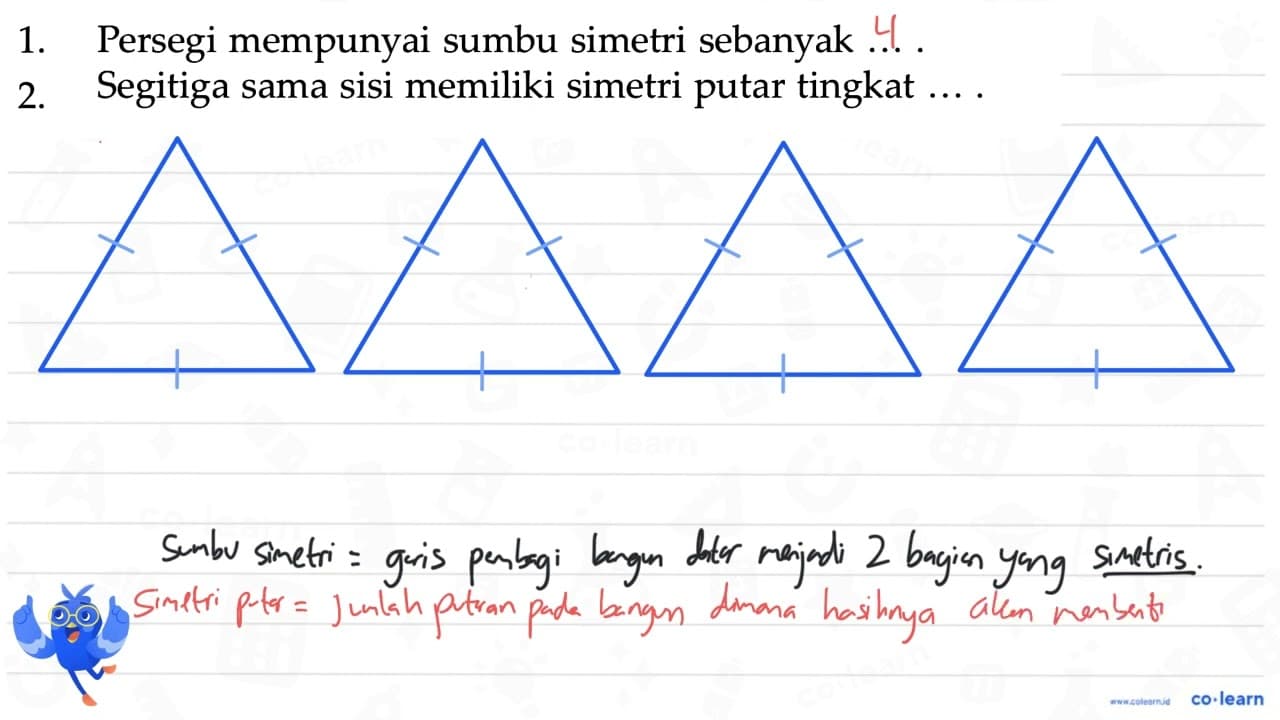 1. Persegi mempunyai sumbu simetri sebanyak .... 4
2. Segitiga sama sisi memiliki simetri putar tingkat ... .
Sumbu simetri = garis pembagi bangun datar menjadi 2 bagian yang simetris.
Simetri putar = Jumlah putaran pada bangun dimana hasilnya akan membenti
www.colearn.id co·learn